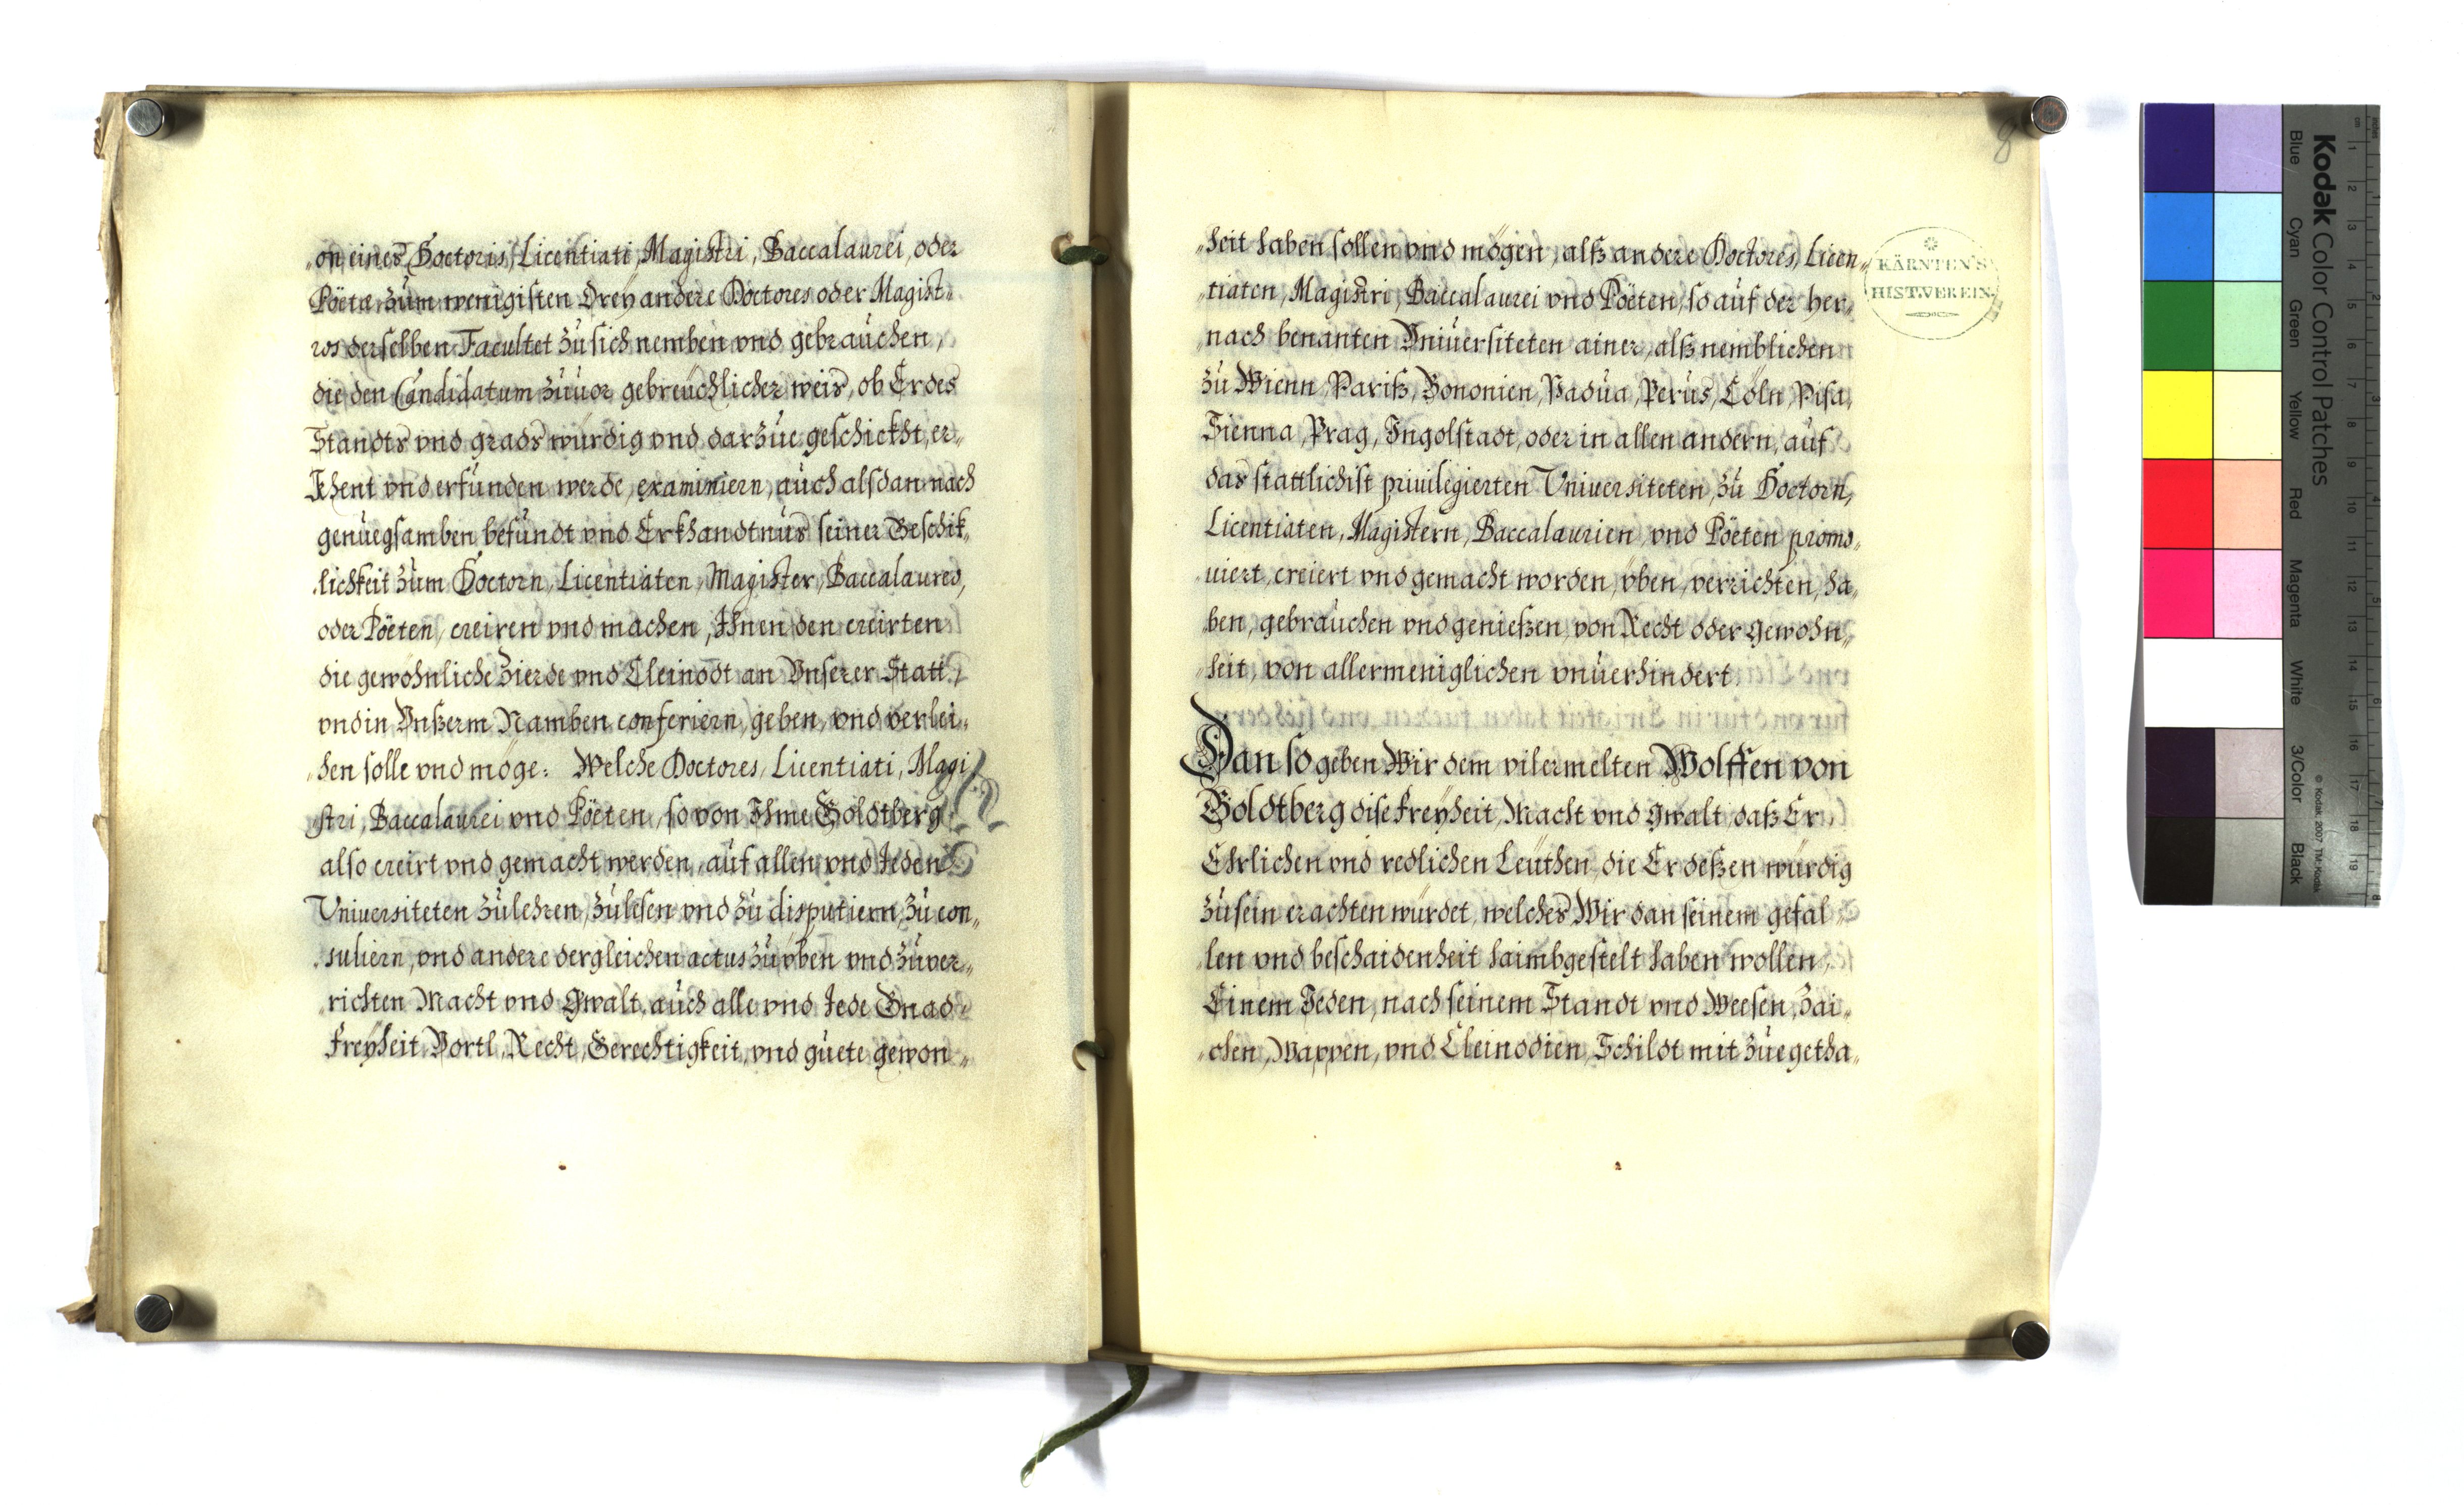 on eines Doctoris, Licentiati, Magistri, Baccalaurei, oder
Pöetæ, zum wenigisten drey andere Doctores oder Magist„
ros derselben Facultet zu sich nemben vnd gebrauchen,
die den Candidatum zuuor gebreuchlicher weis, ob Er des
Standts vnd grads würdig vnd darzue geschickht, er„
khent vnd erfunden werde, examiniern, auch alsdan nach
genuegsamben befundt vnd Erkhandtnus seiner Geschik„
„lichkeit zum Doctorn, Licentiaten, Magister, Baccalaureo,
oder Pöeten, creiren vnd machen, Ihnen den creirten
die gewohnliche Zierde vnd Cleinodt an Vnserer Statt,
vnd in Vnßerm Namben conferiern, geben, vnd verlei„
„hen solle vnd möge: Welche Doctores, Licentiati, Magi
stri, Baccalaurei vnd Pöeten, so von Ihme Goldtberg
also creirt vnd gemacht werden, auf allen vnd Jeden
Vniuersiteten zulehren, zulesen vnd zu disputiern, zu con„
„suliern, vnd andere dergleichen actus zu vben vnd zuuer„
richten Macht vnd Gwalt, auch alle vnd Jede Gnad
Freyheit, Vortl, Recht, Gerechtigkeit, vnd guete gewon„
„heit haben sollen vnd mögen, alß andere Doctores, Licen„
„tiaten, Magistri, Baccalaurei vnd Pöeten, so auf der her„
„nach benanten Vniuersiteten ainer, alß nemblichen
zu Wienn, Pariß, Bononien, Padua, Perus, Cöln, Pisa,
Sienna, Prag, Ingolstadt, oder in allen andern, auf
das stattlichist priuilegierten Vniuersiteten, zu Doctorn,
Licentiaten, Magistern, Baccalaurien, vnd Pöeten promo„
„uiert, creiert vnd gemacht worden, vben, verrichten, ha„
ben, gebrauchen vnd genießen, von Recht oder Gewohn„
„heit, von allermeniglichen vnuerhindert
Dan so geben Wir dem vilermelten Wolffen von
Goldtberg dise Freyheit, Macht vnd Gwalt, daß Er
Ehrlichen vnd redlichen Leuthen, die Er deßen würdig
zusein erachten würdet, welches Wir dan seinem gefal„
len vnd beschaidenheit haimbgestelt haben wollen,
Einem Jeden, nach seinem Standt vnd Weesen, Zai„
„chen, Wappen, vnd Cleinodien, Schildt mit zuegetha„
8
KÄRNTEN'S
HIST.VEREIN.
Kodak Color Control Patches
Blue Cyan Green Yellow Red Magenta White 3/Color Black
© Kodak, 2007 TM: Kodak